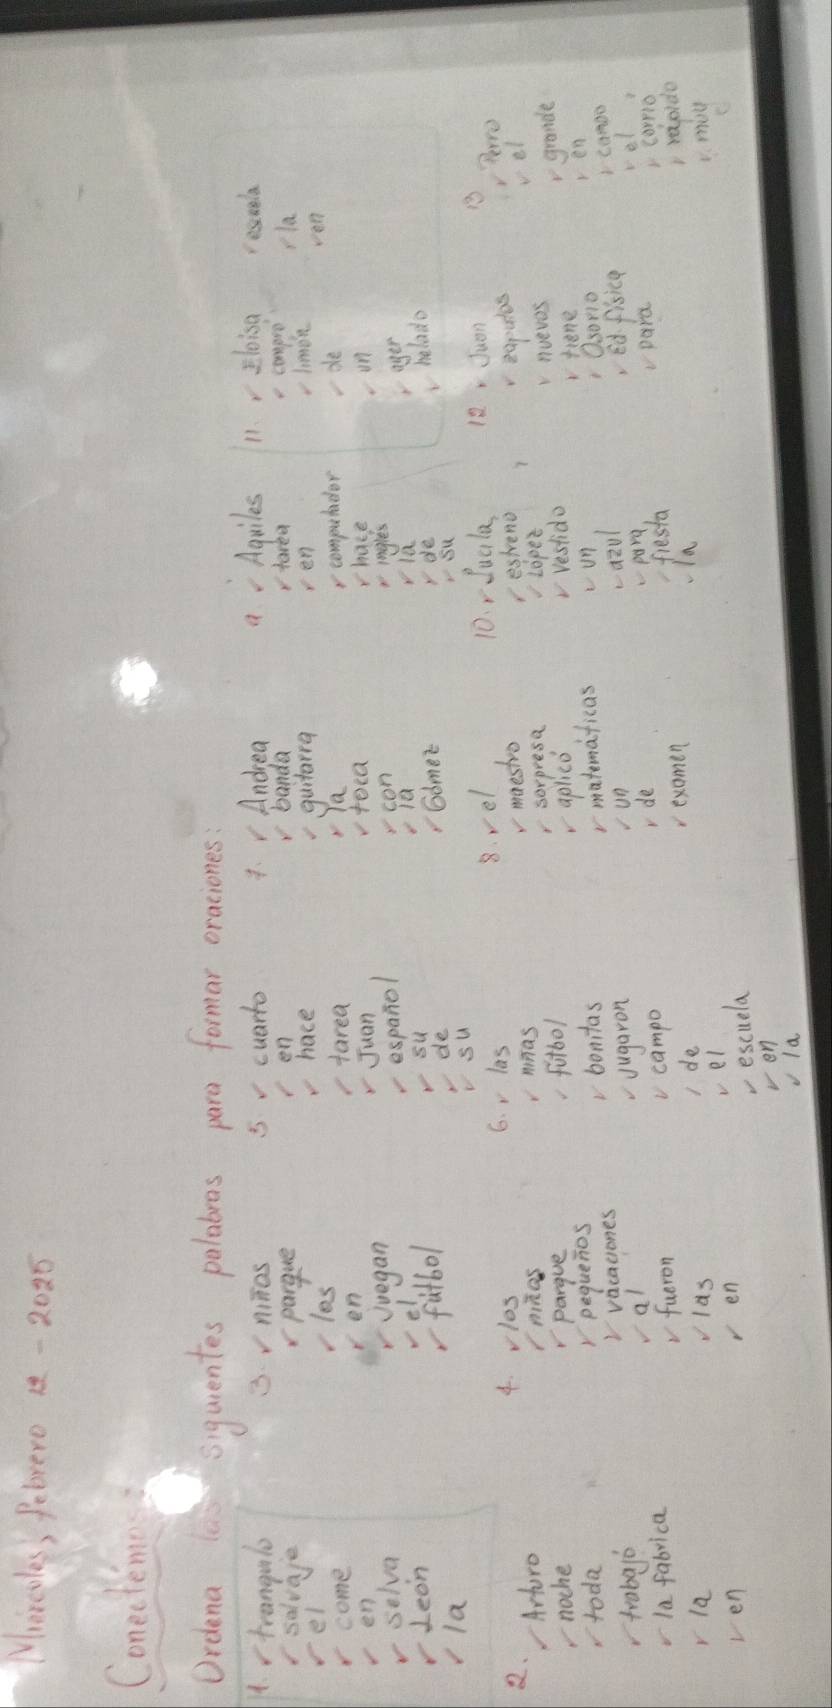 Miércoles, febrero 12 - 2025
Conectémos:
Ordena las siguientes palabras para formar oraciones:
1. tranquilo
salvaje
el
come
en
selva
León
la
2. Arturo
noche
toda
trabajó
la fabrica
la
en
3. niños
parque
los
en
Juegan
el
fútbol
4. los
niños
parque
pequeños
vacaciones
al
fueron
las
en
5 cuarto
en
hace
tarea
Juan
español
su
de
su
6. las
niñas
fútbol
bonitas
Jugaron
campo
de
el
escuela
en
la
7. Andrea
banda
guitarra
la
toca
con
la
Gómez
8. el
maestro
sorpresa
aplicó
matemáticas
un
de
examen
9 Aquiles
tarea
en
computador
hace
inglés
la
de
su
10. Lucila
estreno
López
Vestido
un
azul
para
fiesta
la
11. Eloisa
compró
limón
de
un
ayer
helado
escuela
la
en
12 Juan
zapatos
nuevos
tiene
Osorio
Ed. física
para
13 Perro
el
grande
en
campo
el
corrió
rápido
muy